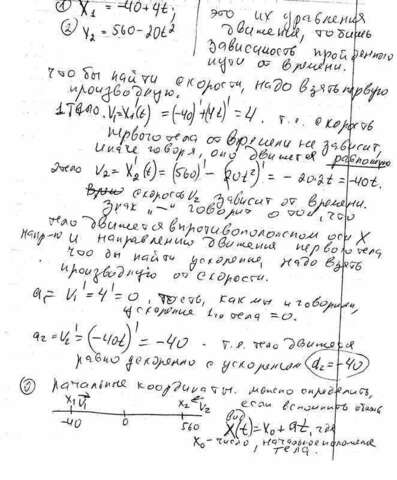 ① X₁ = -40+4t;
② X₂ = 560-20t²
это их уравнения
движения, то бишь
зависимость пройденного
пути от времени.
что бы найти скорости, надо взять первую
производную.
1 тело. V₁=X₁'(t) = (-40)'+(4t)' = 4. т.е. скорость
первого тела от времени не зависит,
иначе говоря, оно движется равномерно
2 тело V₂= X₂'(t) = (560)' - (20t²)' = -20·2t = -40t.
скорость V₂ зависит от времени.
Знак "-" говорит о том, что
тело движется в противоположном оси X
напр-ю и направлению движения первого тела
что бы найти ускорение, надо взять
производную от скорости.
a₁= V₁' = 4' = 0, то есть, как мы и говорили,
ускорение 1го тела = 0.
a₂ = V₂' = (-40t)' = -40 . т.е. тело движется
равно ускоренно с ускорением a₂=-40
③ Начальные координаты можно определить,
если вспомнить общий
вид
X₁ V₁ X₂ V₂
-40 0 560
X(t) = X₀ + at, где
X₀ - число, начальное положение
тела.